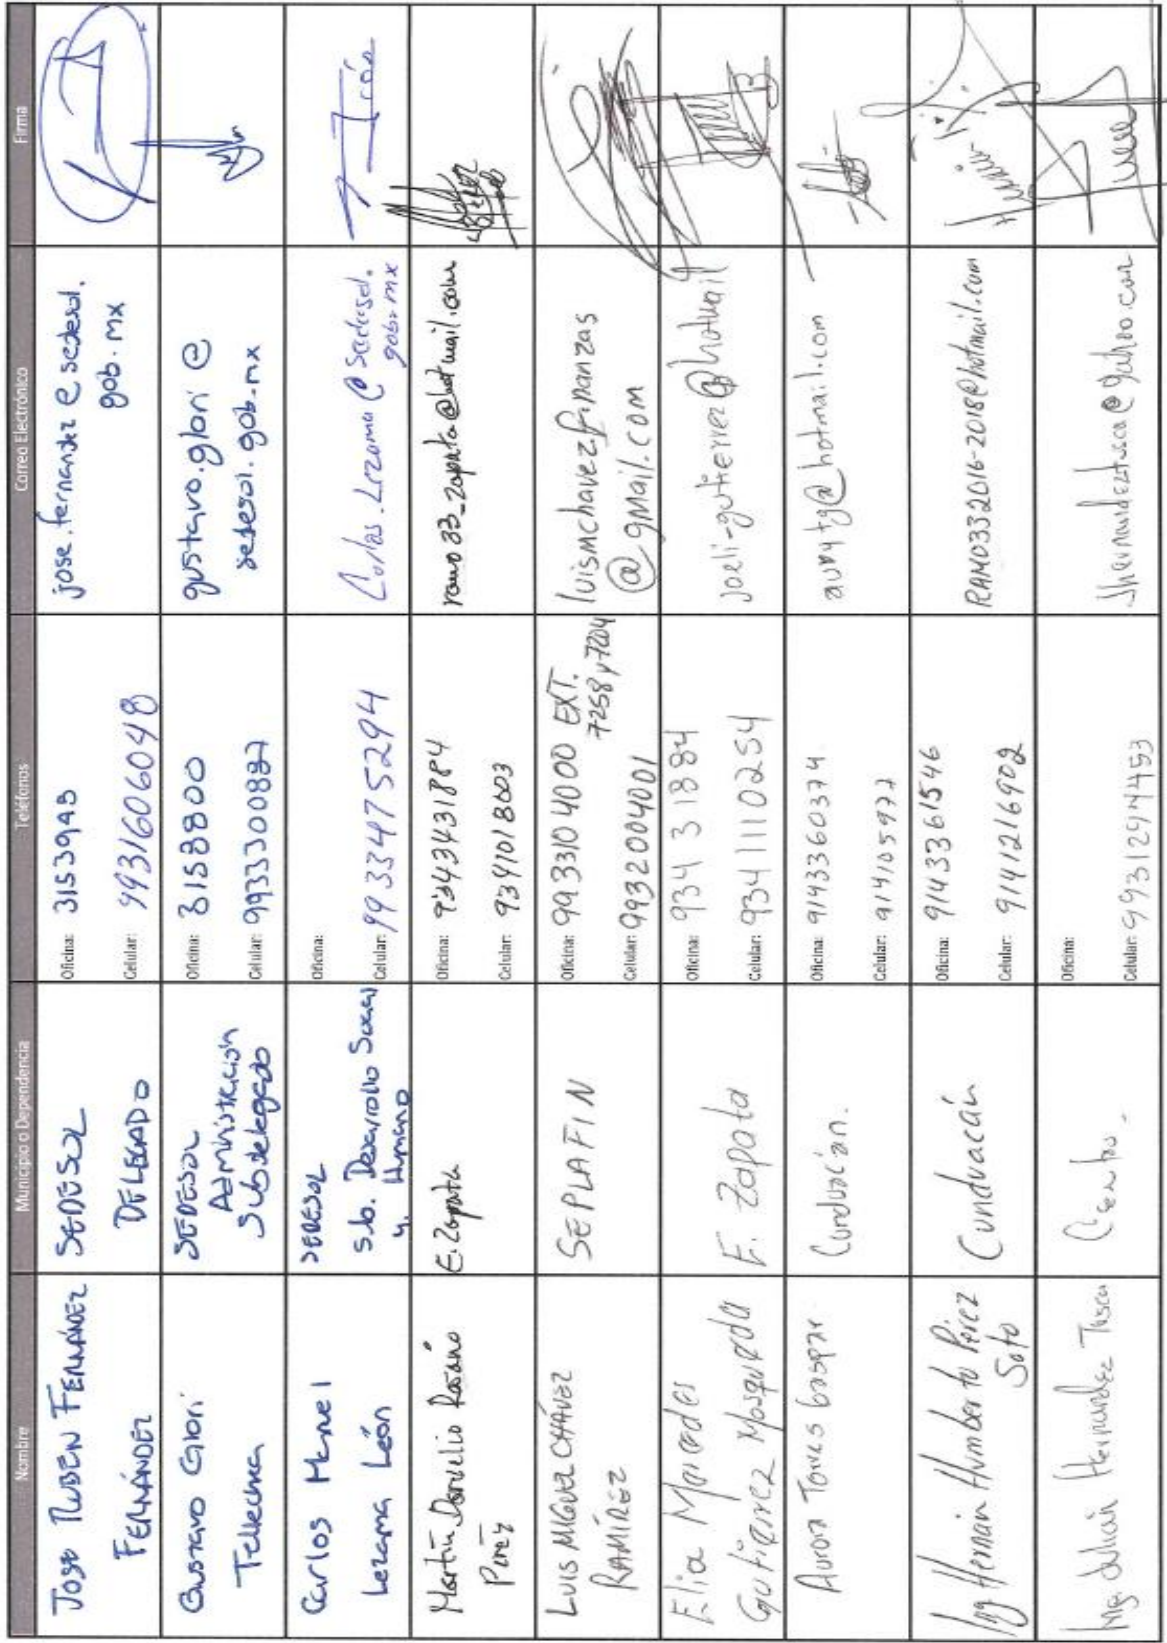 Nombre Municipio o Dependencia Teléfonos Correo Electrónico Firma
Jose Ruben Fernández
Fernández
SEDESOL
DELEGADO
Oficina: 3153948
Celular: 9931606048
jose.fernandez@sedesol.
gob.mx
Gustavo Glori
Tellechea
SEDESOL
Administración
Subdelegado
Oficina: 3158800
Celular: 9933300887
gustavo.glori@
sedesol.gob.mx
Carlos Manuel
Lezama León
SEDESOL
Sub. Desarrollo Social
y Humano
Oficina:
Celular: 9933475294
Carlos.Lezama@sedesol.
gob.mx
Martín Rosario
Pérez
E. Zapata
Oficina: 9343431884
Celular: 9341018603
ramo33_zapata@hotmail.com
LUIS MIGUEL CHÁVEZ
RAMÍREZ
SEPLAFIN
Oficina: 9933104000 EXT.
7258 y 7204
Celular: 9932004001
luismchavezfinanzas
@gmail.com
Elia Mercedes
Gutiérrez Mosqueda
E. Zapata
Oficina: 934 31884
Celular: 934 1110254
joeli-gutierrez@hotmail
Aurora Torres Gaspar.
Cunduacán.
Oficina: 9143360374
Celular: 914105977
aurytg@hotmail.com
Ing Hernán Humberto Pérez
Soto
Cunduacán
Oficina: 9143361546
Celular: 9141216902
RAMO332016-2018@hotmail.com
Ing. Julián Hernández Tusca
Centro.
Oficina:
Celular: 9931294453
Jhernandeztusca@yahoo.com